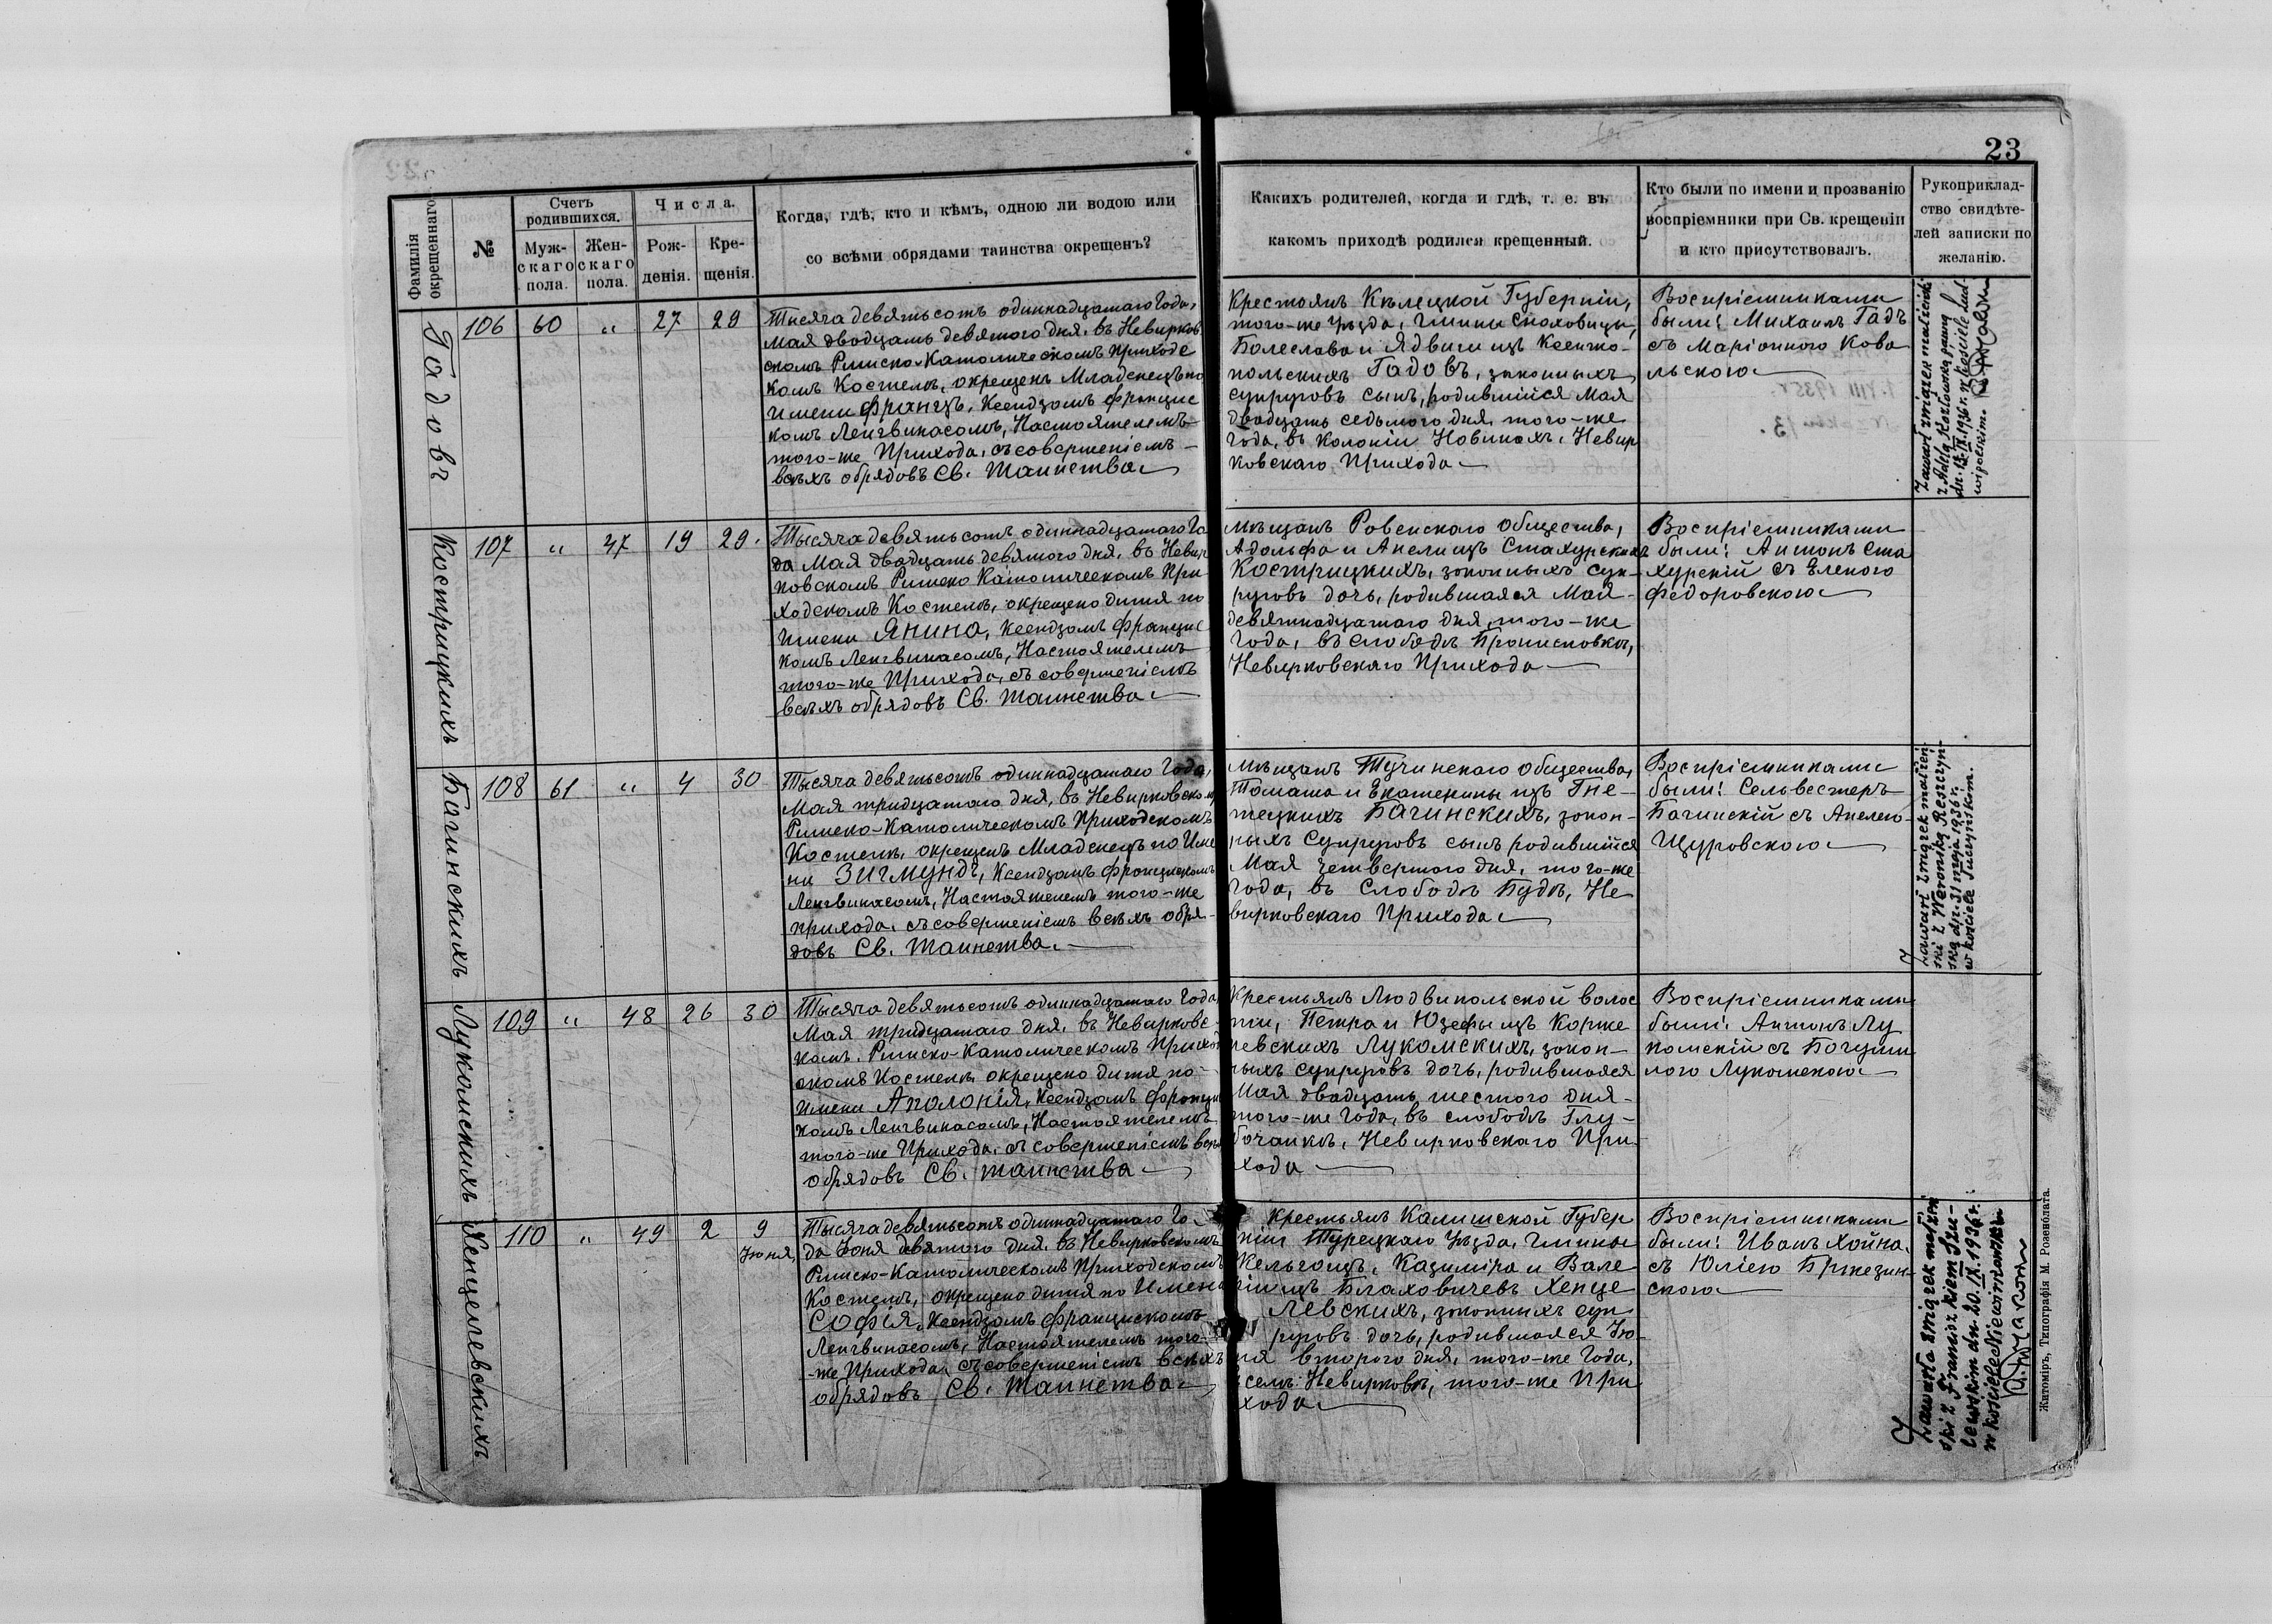 23
Фамилія окрещеннаго.
№
Счетъ родившихся.
Муж-
скаго
пола.
Жен-
скаго
пола.
Числа.
Рож-
денія.
Кре-
щенія.
Когда, гдѣ, кто и кѣмъ, одною ли водою или
со всѣми обрядами таинства окрещенъ?
Какихъ родителей, когда и гдѣ, т. е. въ
какомъ приходѣ родился крещенный.
Кто были по имени и прозванію
воспріемники при Св. крещеніи
и кто присутствовалъ.
Рукоприклад-
ство свидѣте-
лей записки по
желанію.
Гадовъ
106 60 „ 27 29
Тысяча девятьсотъ одиннадцатаго Года,
Мая двадцать девятого дня, въ Невирков
скомъ Римско-Католическомъ Приходс
комъ Костелѣ, окрещенъ Младенецъ по
Имени Францъ, Ксендзомъ Францис
комъ Ленгвинасомъ, Настоятелемъ
того-же Прихода, съ совершеніемъ
всѣхъ обрядовъ Св. Таинства
Крестьянъ Кѣлецкой Губерніи,
того-же Уѣзда, Гмины
Болеслава и Ядвиги изъ Ксенжо-
польскихъ Гадовъ, законныхъ
супруговъ сынъ, родившійся Мая
двадцать седьмого дня, того-же
Года, въ Колоніи Новинахъ, Невир
ковскаго Прихода
Воспріемниками
были: Михаилъ Гадъ
съ Маріанною Кова
льскою
Zawarł związek małżeński
z Adelą Kozłowską panną
dn. IX.1936 r. w kościele Lud-
wipolskim.
Кострицкихъ
107 „ 47 19 29.
Тысяча девятьсотъ одиннадцатаго Го
да Мая двадцать девятого дня, въ Невир
ковскомъ Римско Католическомъ При-
ходскомъ Костелѣ, окрещено дитя по
Имени Янина, Ксендзомъ Францис
комъ Ленгвинасомъ, Настоятелемъ
того-же Прихода, съ совершеніемъ
всѣхъ обрядовъ Св. Таинства
Мѣщанъ Ровенскаго Общества,
Адольфа и Анели изъ Стахурскихъ
Кострицкихъ, законныхъ суп-
руговъ дочь, родившаяся Мая
девятнадцатаго дня, того-же
Года, въ Слободѣ Брониславкѣ,
Невирковскаго Прихода
Воспріемниками
были: Антонъ Ста
хурскій съ Еленою
Федоровскою
Багинскихъ
108 61 „ 4 30
Тысяча девятьсотъ одиннадцатаго Года,
Мая тридцатаго дня, въ Невирковскомъ
Римско-Католическомъ Приходскомъ
Костелѣ, окрещенъ Младенецъ по Име
ни Зигмундъ, Ксендзомъ Францискомъ
Ленгвинасомъ, Настоятелемъ того-же
Прихода, съ совершеніемъ всѣхъ обря-
довъ Св. Таинства.
Мѣщанъ Тучинскаго Общества,
Томаша и Екатерины изъ Гне-
тецкихъ Багинскихъ, закон-
ныхъ Супруговъ сынъ родившійся
Мая четвертого дня, того-же
Года, въ Слободѣ Будкѣ, Не
вирковскаго Прихода
Воспріемниками
были: Сельвестеръ
Багинскій съ Анелею
Щуровскою
Zawarł związek małżeń-
ski z Weroniką Reszczyń-
ską dn. 31 maja 1936 r.
w kościele Tuczyńskim.
Лукомскихъ
109 „ 48 26 30
Тысяча девятьсотъ одиннадцатаго Года
Мая тридцатаго дня, въ Невирковс
комъ Римско-Католическомъ Приход
скомъ Костелѣ окрещено дитя по-
Имени Аполонія, Ксендзомъ Францис
комъ Ленгвинасомъ, Настоятелемъ
того-же Прихода, съ совершеніемъ всѣхъ
обрядовъ Св. Таинства
Крестьянъ Людвипольской волос
ти, Петра и Юзефы изъ Корже
невскихъ Лукомскихъ, закон-
ныхъ супруговъ дочь, родившаяся
Мая двадцать шестого дня
того-же Года, въ слободѣ Глу-
бочанкѣ, Невирковскаго При
хода
Воспріемниками
были: Антонъ Лу
комскій съ Богуми
лою Лукомскою
Хенцелевскихъ
110 „ 49 2 9
Іюня,
Тысяча девятьсотъ одиннадцатаго Го-
да Іюня девятого дня, въ Невирковскомъ
Римско-Католическомъ Приходскомъ
Костелѣ, окрещено дитя по Имени
Софія, Ксендзомъ Францискомъ
Ленгвинасомъ, Настоятелемъ того-
-же Прихода, съ совершеніемъ всѣхъ
обрядовъ Св. Таинства
Крестьянъ Калишской Губер
ніи Турецкаго Уѣзда, Гмины
Кельчощъ, Казиміра и Вале
ріи изъ Блаховичевъ Хенце
левскихъ, законныхъ суп
руговъ дочь, родившаяся Ію-
ня второго дня, того-же Года,
селѣ Невирковѣ, того-же При
хода
Воспріемниками
были: Иванъ Хойна,
съ Юліею Бржезин-
скою
Zawarła związek małżeń
ski z Franciszkiem Szu-
lewskim dn. 20.IX.1936 r.
w kościele Niewirkowskim
Житомiръ, Типографія М. Розенблата.